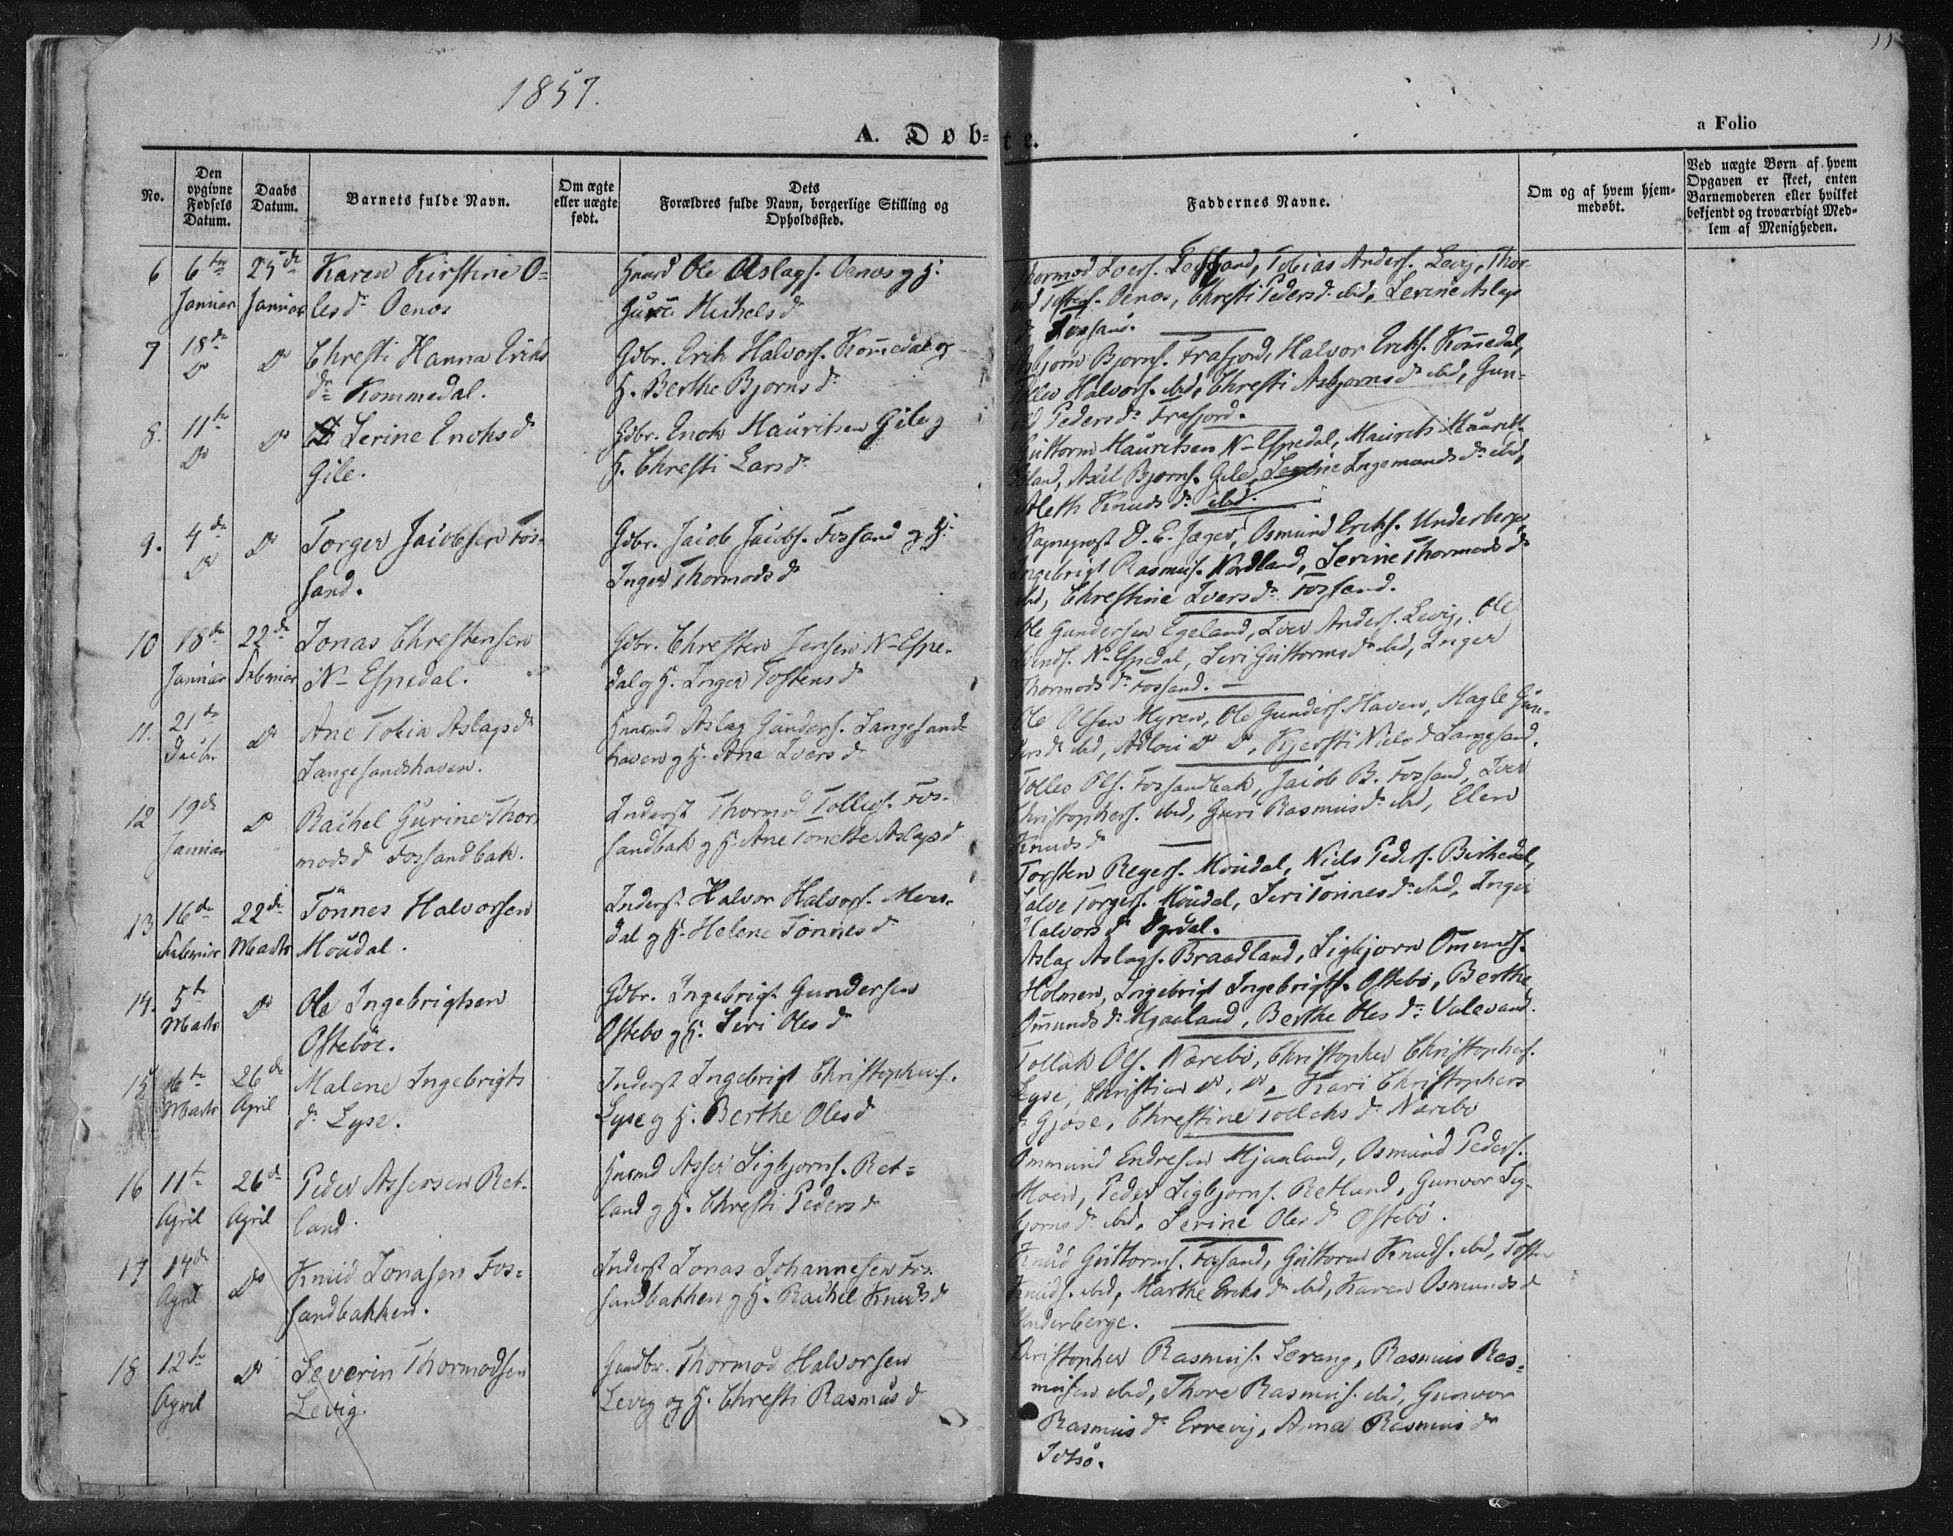 1857.
A. Døb-
te.
a Folio
No.
Den
opgivne
Fødsels
Datum.
Daabs
Datum.
Barnets fulde Navn.
Om ægte
eller uægte
født.
Dets
Forældres fulde Navn, borgerlige Stilling og
Opholdssted.
Faddernes Navne.
Om og af hvem hjem-
medøbt.
Ved uægte Børn af hvem
Opgaven er skeet, enten
Barnemoderen eller hvilket
bekjendt og troværdigt Med-
lem af Menigheden.
6 6te 25de Karen Kirstine O-
Januar Januar lesdr Oenos
Huusmd Ole Aslags. Oenos og H.
Michelsdr
Thormod Ivers. Fossand, Tobias Anders. Levig, Thor-
Oenos, Chresti Pedersdr ibd, Serine Aslags
dr Fossand.
7 18de Do Chresti Hanna Eriks
Do dr Kommedal.
Gdbr. Erik Halvors. Kommedal og
H. Berthe Bjornsdr
Asbjorn Bjorns. Frafjord, Halvor Eriks. Komedal,
Tollev Halvors. ibd, Chresti Asbjornsdr ibd, Gun-
ild Pedersdr Frafjord.
8. 11te Do Serine Enoksdr
Do Gile.
Gdbr. Enok Mauritsen Gile og
H. Chresti Larsdr
Guttorm Mauritsen N-Espedal, Maurits Maurits.
Axel Bjorns. Gile, Serine Ingemundsdr ibd,
Aleth Knudsdr ibd.
9. 4de Do Torger Jacobsen Fos-
Do sand.
Gdbr. Jacob Jacobs. Fossand og H.
Inger Thormodsdr
Sogneprest D. C. Jæger, Osmund Eriks. Underberge,
Ingebrigt Rasmus. Nordland, Serine Thormodsdr
ibd, Chrestine Iversdr Fossand.
10 18de 22de Jonas Chrestensen
Januar Februar N-Espedal.
Gdbr. Chresten Jensen N-Espe-
dal og H. Inger Tostensdr
Ole Gundersen Egeland, Iver Anders. Levig, Ole
N-Espedal, Siri Guttormsdr ibd, Inger
Thormodsdr Fossand.
11. 21de Do Ane Tobia Aslagsdr
Langesandshaven.
Huusmd Aslag Gunders. Langesand-
haven og H. Ane Iversdr
Ole Olsen Myren, Ole Gunders. Haven, Magle Gun-
dersdr ibd, Do Do, Kjersti Nielsdr Langesand.
12 19de Do Rachel Gurine Thor-
Januar modsdr Fossandbak.
Inderst Thormod Tollefs. Fos-
sandbak og H. Ane Tonette Aslagsdr
Tollev Ols. Fossandbak, Jacob B. Fossand, Iver
Christophers. ibd, Guri Rasmusdr ibd, Elen
Knudsdr
13 16de 22de Tönnes Halvorsen
Februar Marts Möudal.
Inderst Halvor Halvors. Meu-
dal og H. Helene Tönnesdr
Torsten Reyers. Moudal, Niels Peders. Birkedal,
Talve Torgers. Moudal, Siri Tonnesdr ibd, Inger
Halvorsdr Dyrdal.
14. 5te Do Ole Ingebrigtsen
Marts Osteböe.
Gdbr. Ingebrigt Gundersen
Ostebo og H. Siri Olesdr
Aslag Aslags. Braadland, Sigbjorn Omunds.
Holmen, Ingebrigt Ingebrigts. Ostebö, Berthe
Omundsdr Mjaaland, Berthe Olesdr Valevand.
15 16te 26de Malene Ingebrigts
Marts April dr Lyse.
Inderst Ingebrigt Christophers.
Lyse og H. Berthe Olesdr
Tollak Ols. Nærebö, Christopher Christophers.
Lyse, Christian Do, Do, Kari Christophers
dr Gjöse, Chrestine Tollaksdr Narebö
16 11te 26de Peder Assersen Ret-
April April land.
Huusmd Asser Sigbjorns. Ret-
land og H. Chresti Pedersdr
Ommund Endresen Mjaaland, Osmund Peders.
Moen, Peder Sigbjorns. Retland, Gunvor Sig-
bjornsdr ibd, Serine Olesdr Ostebö.
17 14de Do Knud Jonasen Fos-
April sandbakken.
Inderst Jonas Johannesen Fos-
sandbakken og H. Rachel Knudsdr
Knud Guttorms. Fossand, Guttorm Knuds. ibd, Tosten
Knuds. ibd, Marthe Eriksdr ibd, Karen Osmundsdr
Underberge.
18 12te Do Severin Thormodsen
April Levig.
Gaardbr. Thormod Halvorsen
Levig og H. Chresti Rasmusdr
Christopher Rasmus. Lerang, Rasmus Ras-
musen ibd, Thore Rasmus. ibd, Gunvor
Rasmusdr Errevig, Anna Rasmusdr
Idsö.